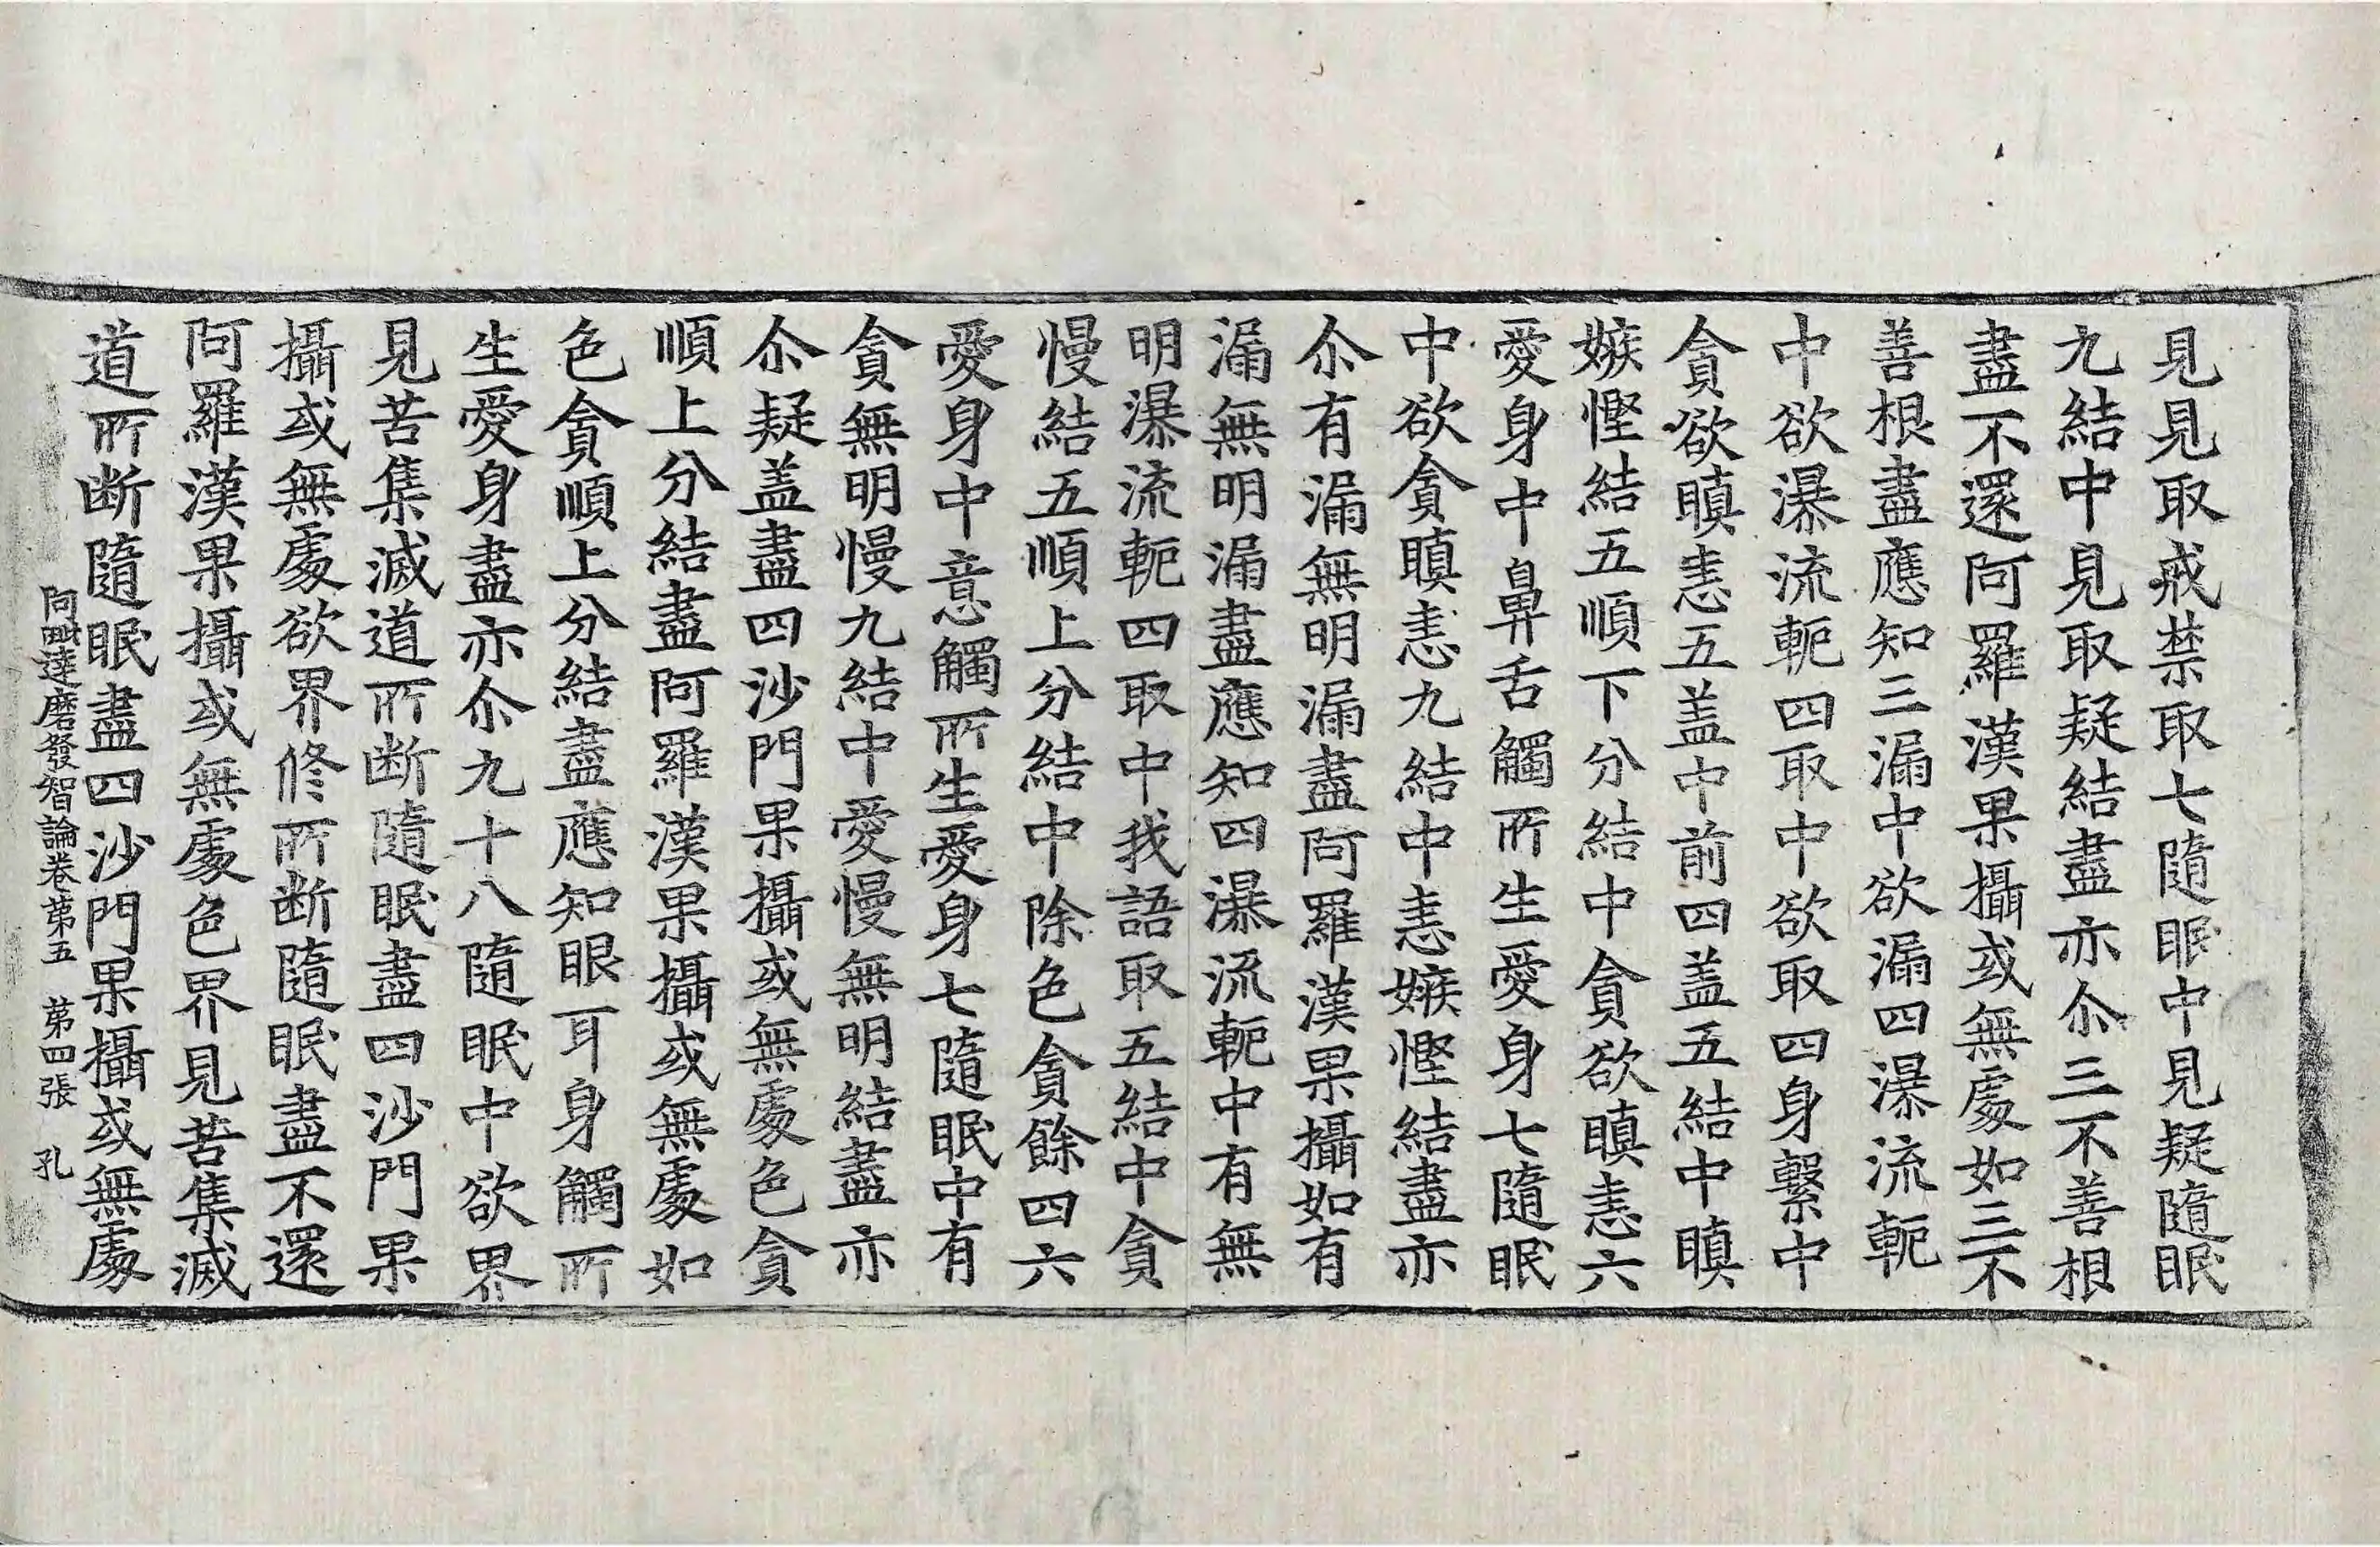 見見取戒禁取七隨眠中見疑隨眠
九結中見取疑結盡亦尒三不善根
盡不還阿羅漢果攝或無處如三不
善根盡應知三漏中欲漏四瀑流軛
中欲瀑流軛四取中欲取四身繫中
貪欲瞋恚五盖中前四盖五結中瞋
嫉慳結五順下分結中貪欲瞋恚六
愛身中鼻舌觸所生愛身七隨眠
中欲貪瞋恚九結中恚嫉慳結盡亦
尒有漏無明漏盡阿羅漢果攝如有
漏無明漏盡應知四瀑流軛中有無
明瀑流軛四取中我語取五結中貪
慢結五順上分結中除色貪餘四六
愛身中意觸所生愛身七隨眠中有
貪無明慢九結中愛慢無明結盡亦
尒疑盖盡四沙門果攝或無處色貪
順上分結盡阿羅漢果攝或無處如
色貪順上分結盡應知眼耳身觸所
生愛身盡亦尒九十八隨眠中欲界
見苦集滅道所断隨眠盡四沙門果
攝或無處欲界修所断隨眠盡不還
阿羅漢果攝或無處色界見苦集滅
道所断隨眠盡四沙門果攝或無處
阿毗達磨發智論卷苐五 苐四張 孔